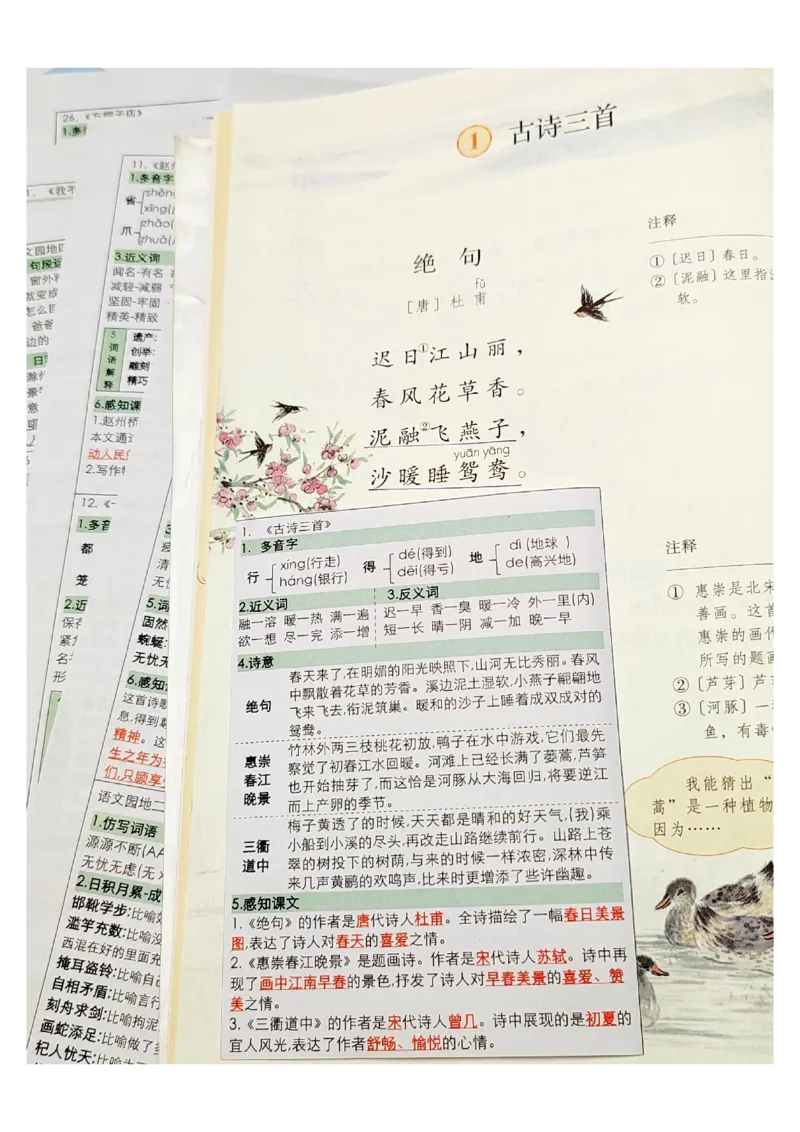 26.《方帽子店》
1.多
11.《赵州
1.多音字
省
xǐng(
爪
zhuǎ(
3.近义词
闻名-有名
减轻-减弱
坚固-牢固
精美-精致
5词语解释
遗产:
创举:
雕刻
精巧
6.感知课
1.赵州桥
本文通过
动人民
2.写作特
12.《一
1.多音
都
笼
2.近
5.词
固然
蜿蜒:
无忧无
6.感知
这首诗歌
息,得到
精神。这
生之年为
们,只愿享
语文园地二
1.仿写词语
源源不断(AA
无忧无虑(无
2.日积月累-成
邯郸学步:比喻
滥竽充数:比喻没
西混在好的里面充
掩耳盗铃:比喻自
自相矛盾:比喻言行
刻舟求剑:比喻拘泥
画蛇添足:比喻做了多
杞人忧天:比喻
1 古诗三首
绝句
[唐]杜甫
fǔ
迟日①江山丽,
春风花草香。
泥融②飞燕子,
yuān yāng
沙暖睡鸳鸯。
注释
①〔迟日〕春日。
②〔泥融〕这里指
软。
1. 《古诗三首》
1. 多音字
行 xíng(行走) háng(银行) 得 dé(得到) děi(得亏) 地 dì(地球) de(高兴地)
2.近义词 3.反义词
融—溶 暖—热 满—遍 迟—早 香—臭 暖—冷 外—里(内)
欲—想 尽—完 添—增 短—长 晴—阴 减—加 晚—早
4.诗意
绝句
春天来了,在明媚的阳光映照下,山河无比秀丽。春风
中飘散着花草的芳香。溪边泥土湿软,小燕子翩翩地
飞来飞去,衔泥筑巢。暖和的沙子上睡着成双成对的
鸳鸯。
惠崇春江晚景
竹林外两三枝桃花初放,鸭子在水中游戏,它们最先
察觉了初春江水回暖。河滩上已经长满了蒌蒿,芦笋
也开始抽芽了,而这恰是河豚从大海回归,将要逆江
而上产卵的季节。
三衢道中
梅子黄透了的时候,天天都是晴和的好天气,(我)乘
小船到小溪的尽头,再改走山路继续前行。山路上苍
翠的树投下的树荫,与来的时候一样浓密,深林中传
来几声黄鹂的欢鸣声,比来时更增添了些许幽趣。
5.感知课文
1.《绝句》的作者是唐代诗人杜甫。全诗描绘了一幅春日美景
图,表达了诗人对春天的喜爱之情。
2.《惠崇春江晚景》是题画诗。作者是宋代诗人苏轼。诗中再
现了画中江南早春的景色,抒发了诗人对早春美景的喜爱、赞
美之情。
3.《三衢道中》的作者是宋代诗人曾几。诗中展现的是初夏的
宜人风光,表达了作者舒畅、愉悦的心情。
注释
① 惠崇是北宋
善画。这首
惠崇的画作
所写的题画
②〔芦芽〕芦
③〔河豚〕一
鱼,有毒
我能猜出“
蒿”是一种植物
因为……